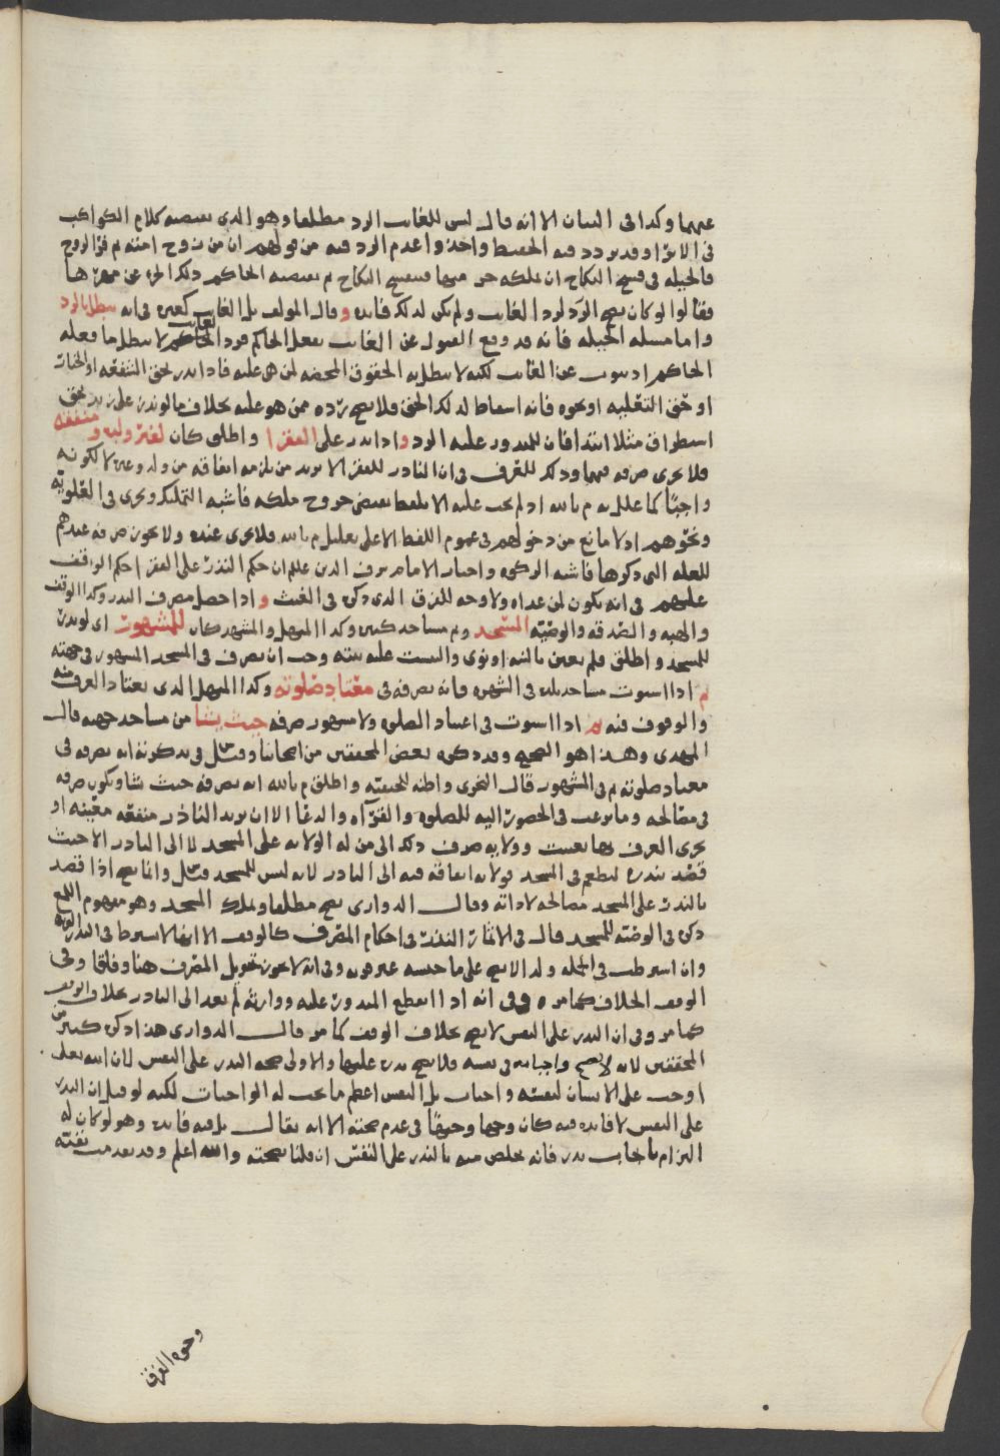 عنهما وكذا في البيان الا انه قال ليس للغائب الرد مطلقا وهو الذي يقتضيه كلام الكواكب
في الابرا وقد تردد فيه الحفيظ واخذوا عدم الرد فيه من قولهم ان من تزوج امته ثم الزوج
فالحيله في فسخ النكاح ان يملكه جز منها فينفسخ النكاح ثم الحاكم ذلك الجزء عن
فقالوا لو كان يصح الرد لرد الغائب ولم يكن لذلك فايده وقال المولف بل الغائب كغيره في انه يبطل بالرد
واما مسله الحيله فانه قد وقع القبول عن الغائب بفعل الحاكم فرد الغائب لا يبطل ما فعله
الحاكم اذ ينوب عن الغائب لكنه لا يبطل به الحقوق المحضه لمن هي عليه فاذا نذر بحق الشفعه او الخيارات
او حق التعليه او نحوه فانه اسقاط لذلك الحق فلا يصح رده ممن هو عليه بخلاف ما لو نذر على زيد بحق
اسطراق مثلا ابتدا فان للمنذور عليه الرد واذا نذر على الفقرا واطلق كان لغير ولده و منفقه
فلا يجزى صرفه فيهما وذلك للعرف في ان الناذر للفقرا لا يريد من يلزمه انفاقه من ولد وغيره لا لكونه
واجبا كما علله م بالله اذ لم يجب عليه الا بلفظ يقتضي خروج ملكه فاشبه التمليك ويجزى في العلويه
ونحوهم اذ لا مانع من دخولهم في عموم اللفظ الا على تعليل م بالله فلا يجزى عنده ولا يجوز صرفه عندهم
للعله التي ذكروها فاشبه الزكوه واختار الامام شرف الدين علم ان حكم النذر على الفقرا حكم الوقف
عليهم في انه يكون لمن عداه ولا وجه للفرق الذي ذكره في الغيث و اذا حصل مصرف النذر وكذا الوقف
والهبه والصدقه والوصيه المسجد وثم مساجد كثيره وكذا المنهل والمشهد كان للمشهور اي لو نذر
للمسجد واطلق فلم يعين بالنيه او نوى والتبست عليه نيته وجب ان يصرف في المسجد المشهور في جهته
ثم اذا استوت مساجد بلده في الشهره فانه يصرفه في معتاد صلوته وكذا المنهل الذي يعتاد الغرف منه
والوقوف فيه ثم اذا استوت في اعتياد الصلوه ولا مشهور صرفه حيث يشا من مساجد جهته قال
المهدي وهذا هو الصحيح وقد ذكره بعض المحققين من اصحابنا وقيل في تذكرته انه يصرفه في
معتاد صلوته ثم في المشهور قال النجري واظنه للحنفيه واطلق م بالله انه يصرفه حيث يشا ويكون صرفه
في مصالحه وما يرغب في الحضور اليه للصلوه والقرآه والدعا الا ان يريد الناذر منفعه معينه او
يجرى العرف بها تعينت وولايه صرف ذلك الى من له الولايه على المسجد لا الى الناذر الا حيث
قصد بنذره ليطعم في المسجد فولايه انفاقه فيه الى الناذر لانه ليس للمسجد قيل وانما يصح اذا قصد
بالنذر على المسجد مصالحه لا ذاته وقال الدواري يصح مطلقا ويملك المسجد وهو مفهوم اللمع
ذكره في الوصيه للمسجد قال في الاثمار النذر في احكام المصرف كالوقف الا انها لا تشترط في النذر القربه
وان اشترطت في الجمله ولذا لا يصح على ما جنسه غير قربه وفي انه لا يجوز تحويل المصرف هنا وفاقا وفي
الوقف الخلاف كما مر ه وفي انه اذا انقطع المنذور عليه ووارثه لم يعد الى الناذر بخلاف الوقف
كما مر وفي ان النذر على النفس لا يصح بخلاف الوقف كما مر قال الدواري هذا ذكره كثير من
المحققين لانه لا يصح واجبا به في نفسه فلا يصح نذره عليها والاولى صحه النذر على النفس لان الله تعلى
اوجب على الانسان لنفسه واجبات بل النفس اعظم ما يجب له الواجبات لكنه لو قيل ان النذر
على النفس لا فايده فيه كان وجها وجيها في عدم صحته الا انه يقال بل فيه فايده وهو لو كان له
الزام بايجاب نذر فانه يخلص منه بالنذر على النفس ان قلنا بصحته والله اعلم وقد تقدمت بقيته
وجوه الفرق